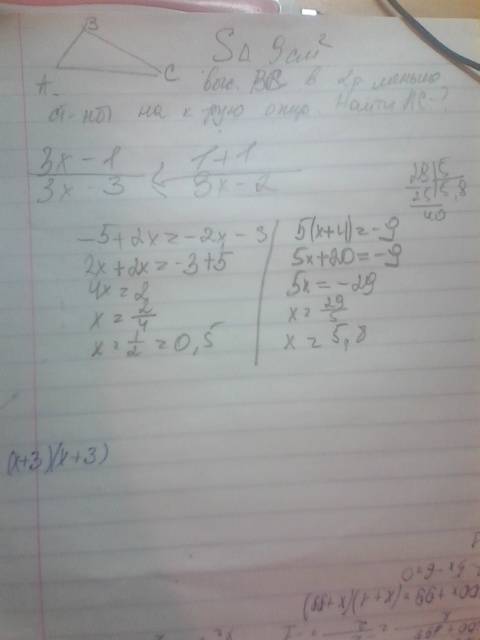 B
A
C
S△ 9 см²
выс. BB в 2р меньше
ст-ны на к-рую опущ. Найти AC-?
3x - 1
3x - 3
1 + 1
3x - 2
28|5
25|5,8
40
-5+2x=-2x-3
2x+2x=-3+5
4x=2
x=2/4
x=1/2=0,5
5(x+4)=-9
5x+20=-9
5x=-29
x=29/5
x=5,8
(x+3)(x+3)